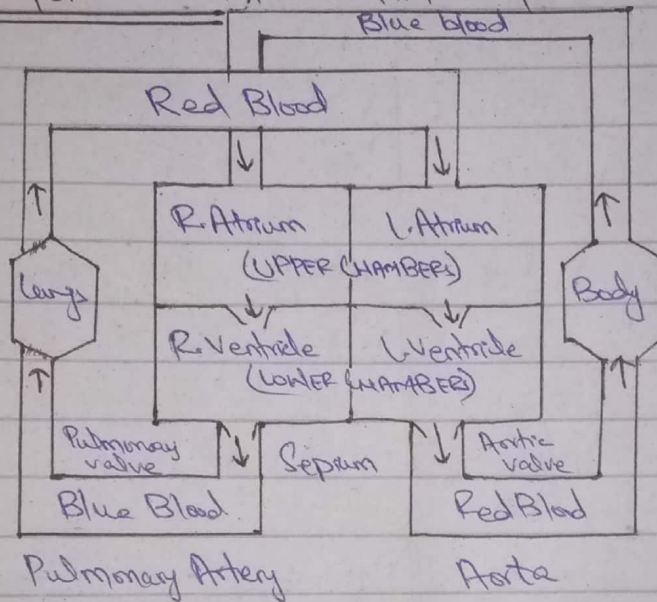 Blue blood
Red Blood
R.Atrium
L.Atrium
(UPPER CHAMBERS)
Lungs
Body
R.Ventricle
L.Ventricle
(LOWER CHAMBERS)
Pulmonary
valve
Septum
Aortic
valve
Blue Blood
Red Blood
Pulmonary Artery
Aorta